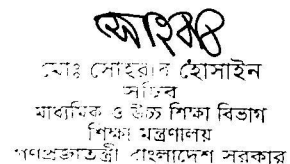 মোঃ সোহরাব হোসাইন
সচিব
মাধ্যমিক ও উচ্চ শিক্ষা বিভাগ
শিক্ষা মন্ত্রণালয়
গণপ্রজাতন্ত্রী বাংলাদেশ সরকার